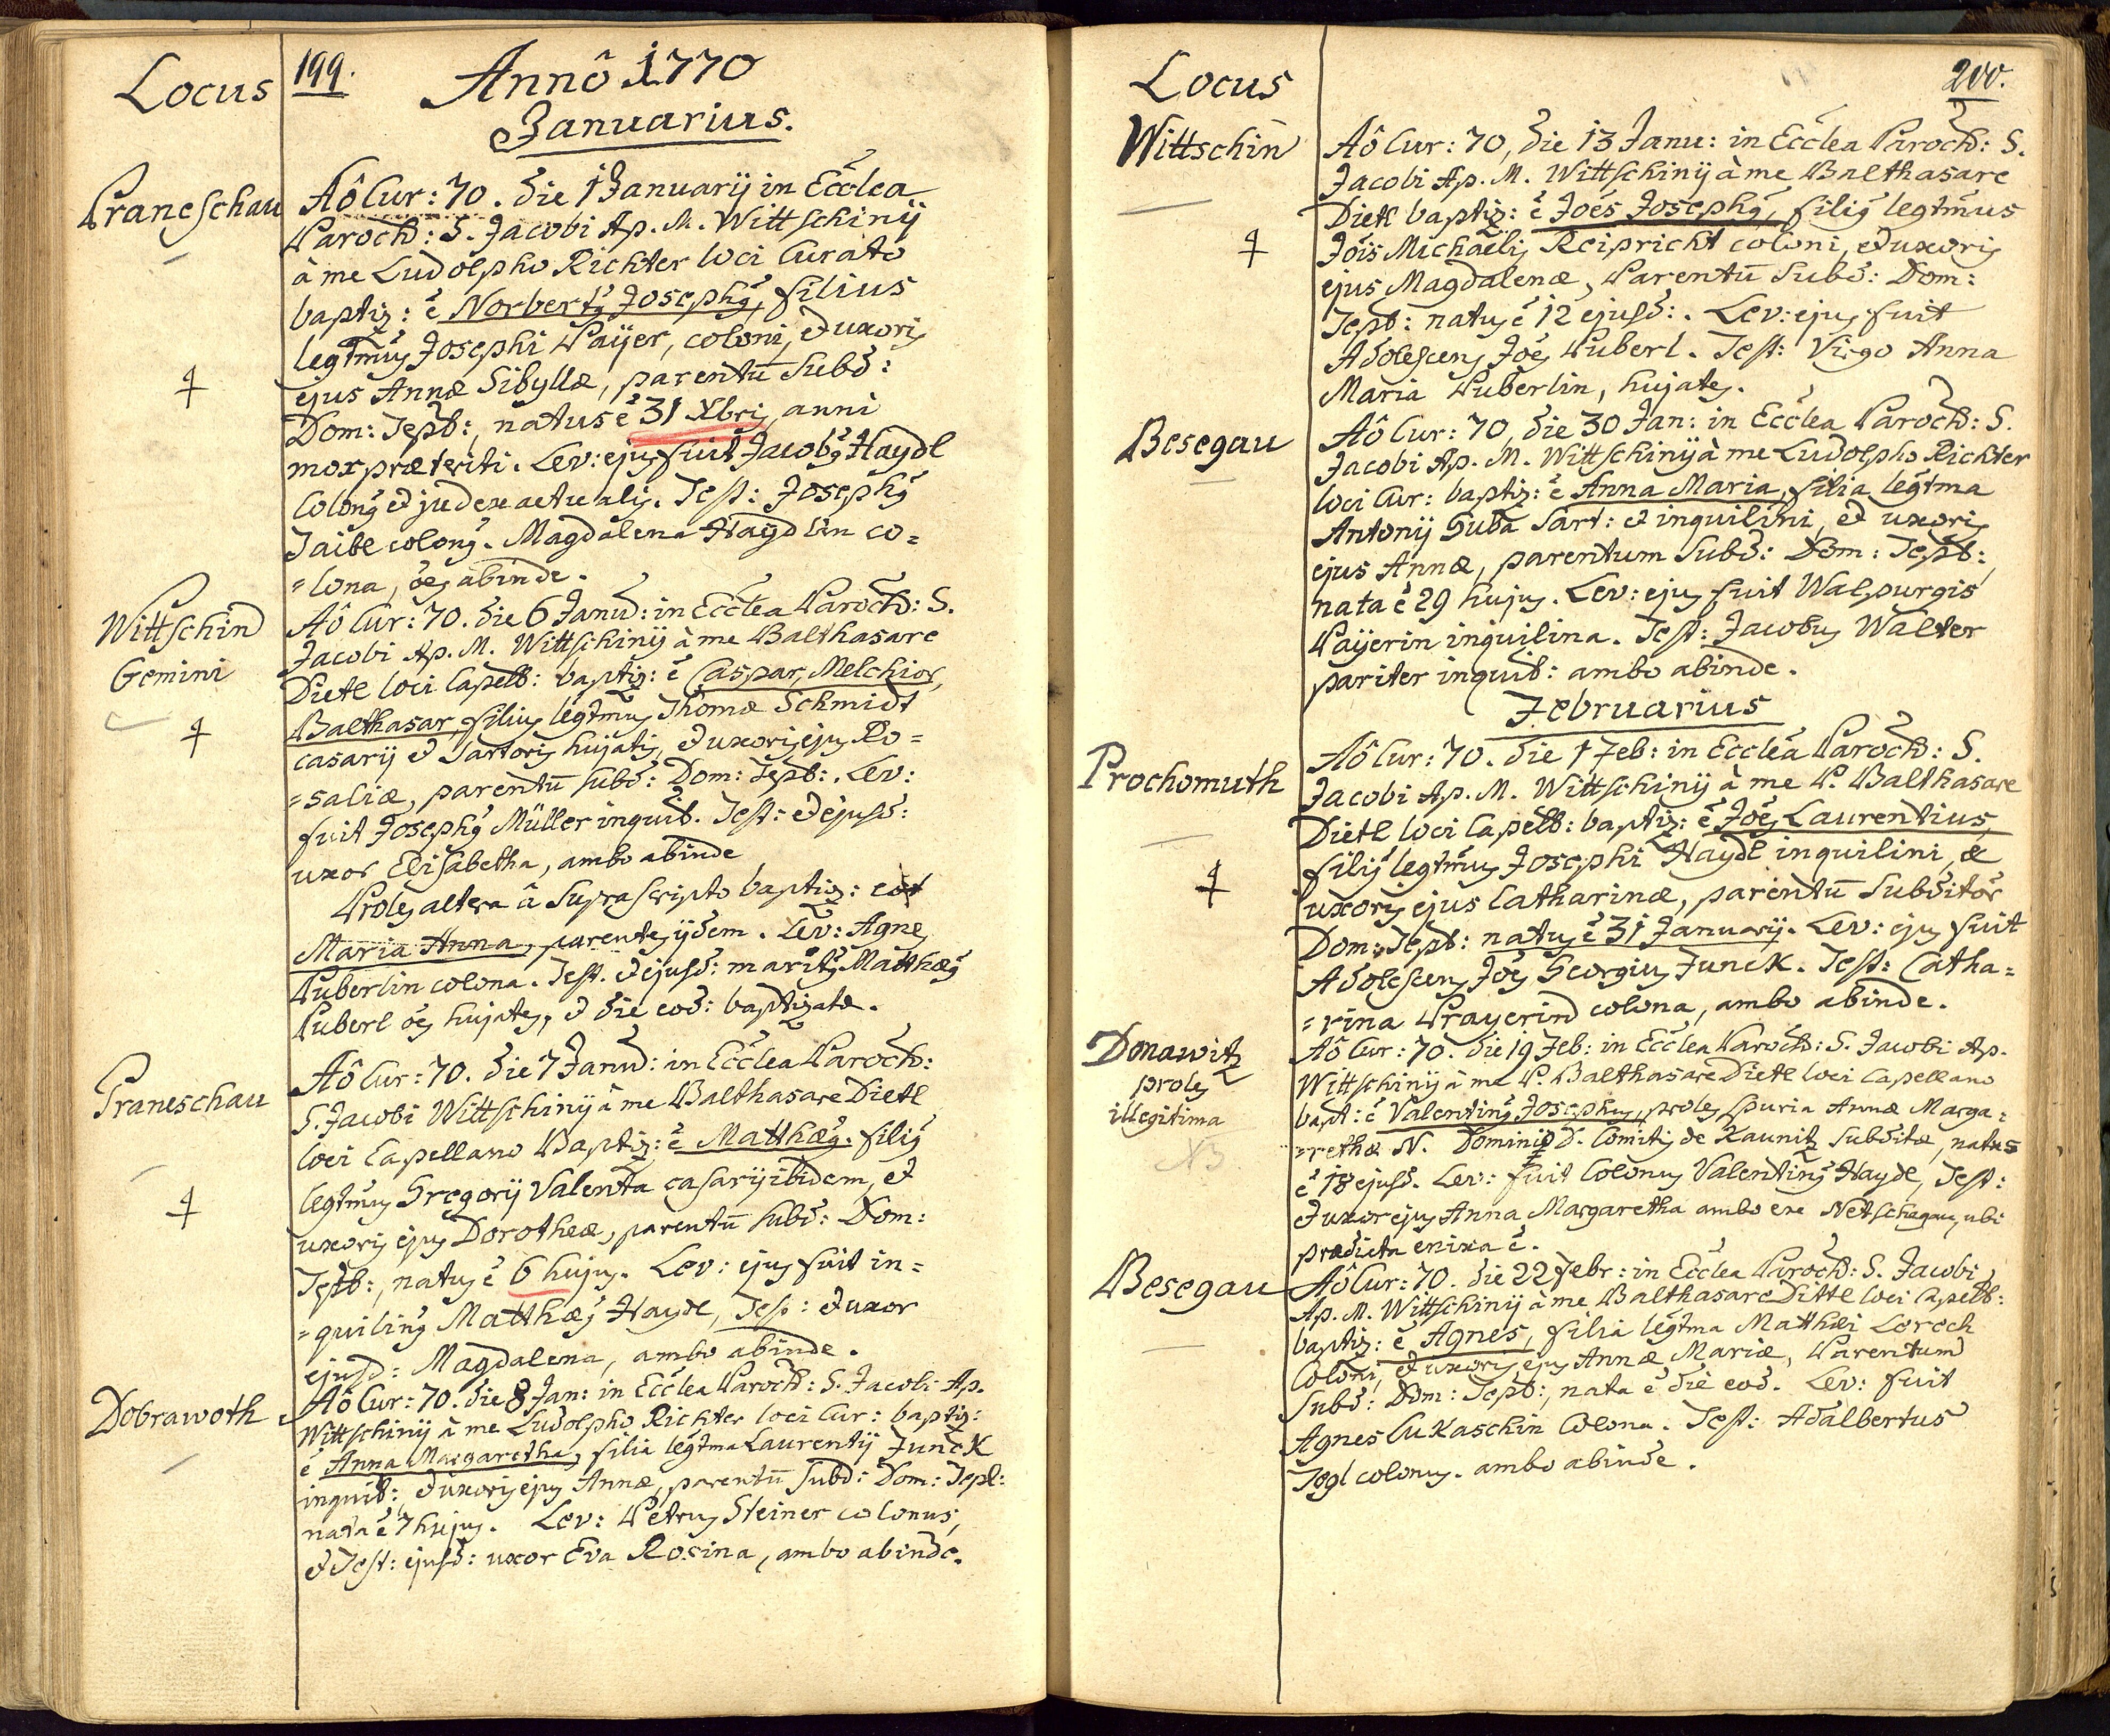 Locus
199.
Annô 1770
Januarius.
Praneschau
Aô Cur: 70. die 1 Januarij in Ecclea
Paroch: S. Jacobi Ap. M. Wittschinij
à me Ludolpho Richter loci Curato
baptiz: ē Norbertus Josephus, filius
legtmus Josephi Payer, coloni, et uxoris
ejus Annæ Sibyllæ, parentū Subd:
Dom: Tepl:, natus ē 31 Xbris anni
mox præteriti. Lev: ejus fuit Jacobus Haydl
Colonus et judex actualis. Test: Josephus
Taibl colonus. Magdalena Haydlin co=
=lona, oēs abinde.
Wittschin
Gemini
Aô Cur: 70. die 6 Janu: in Ecclea Paroch: S.
Jacobi Ap. M. Wittschinij à me Balthasare
Dietl loci Capell: baptiz: ē Caspar, Melchior,
Balthasar, filius legtmus Thomæ Schmidt
casarij et Sartoris hujatis, et uxoris ejus Ro=
=saliæ, parentū Subd: Dom: Tepl:. Lev:
fuit Josephus Müller inquil. Test: et ejusd:
uxor Elisabetha, ambo abinde
Proles altera â Suprascripto baptiz: est
Maria Anna, parentes ijdem. Lev: Agnes
Puberlin colona. Test. et ejusd: maritus Matthæus
Puberl oēs hujates, et die eod: baptizatæ.
Praneschau
Aô Cur: 70. die 7 Janu: in Ecclea Paroch:
S. Jacobi Wittschinij à me Balthasare Dietl
loci Capellano Baptiz: ē Matthæus. filius
legtmus Gregorij Valenta casarij ibidem, et
uxoris ejus Dorotheæ, parentū Subd: Dom:
Tepl:, natus ē 6 hujus. Lev: ejus fuit in=
=quilinus Matthæus Haydl, Test: et uxor
ejusd: Magdalena, ambo abinde.
Dobrawoth
Aô Cur: 70. die 8 Jan: in Ecclea Paroch: S. Jacobi Ap.
Wittschinij à me Ludolpho Richter loci Cur: baptiz:
ē Anna Margaretha, filia legtma Laurentij Junck
inquil:, et uxoris ejus Annæ, parentū Subd: Dom: Tepl:
nata ē 7 hujus. Lev: Petrus Steiner colonus,
et Test: ejusd: uxor Eva Rosina, ambo abinde.
Locus
200.
Wittschin
Aô Cur: 70, die 13 Janu: in Ecclea Paroch: S.
Jacobi Ap. M. Wittschinij à me Balthasare
Dietl baptiz: ē Joēs Josephus, filius legtmus
Jōis Michaelis Reipricht coloni, et uxoris
ejus Magdalenæ, Parentū Subd: Dom:
Tepl: natus ē 12 ejusd:. Lev: ejus fuit
Adolescens Joēs Puberl. Test: Virgo Anna
Maria Puberlin, hujates.
Besegau
Aô Cur: 70, die 30 Jan: in Ecclea Paroch: S.
Jacobi Ap. M. Wittschinij à me Ludolpho Richter
loci Cur: baptiz: ē Anna Maria, filia legtma
Antonij Suba Sart: et inquilini, et uxoris
ejus Annæ, parentum Subd: Dom: Tepl:,
nata ē 29 hujus. Lev: ejus fuit Walpurgis
Payerin inquilina. Test: Jacobus Walter
pariter inquil: ambo abinde.
Februarius
Prochomuth
Aô Cur: 70. die 1 Feb: in Ecclea Paroch: S.
Jacobi Ap. M. Wittschinij à me P. Balthasare
Dietl loci Capell: baptiz: ē Joēs Laurentius,
filius legtmus Josephi Haydl inquilini, &
uxoris ejus Catharinæ, parentū Subditor
Dom: Tepl: natus ē 31 Januarij. Lev: ejus fuit
Adolescens Joēs Georgius Junck. Test: Catha=
=rina Prayerin colona, ambo abinde.
Donawitz
proles
illegitima
NB
Aô Cur: 70. die 19 Feb: in Ecclea Paroch: S. Jacobi Ap.
Wittschinij à me P. Balthasare Dietl loci Capellano
bapt: ē Valentinus Josephus, proles spuria Annæ Marga=
=rethæ N. Dominio D. Comitis de Kaunitz Subditæ, natus
ē 18 ejusd. Lev: fuit Colonus Valentinus Haydl, Test:
et uxor ejus Anna Margaretha ambo ex Netschagau, ubi
prædicta enixa ē.
Besegau
Aô Cur: 70. die 22 Febr: in Ecclea Paroch: S. Jacobi
Ap. M. Wittschinij à me Balthasare Dietl loci Capell:
baptiz: ē Agnes, filia legtma Matthæi Loroch
Coloni, et uxoris ejus Annæ Mariæ, Parentum
Subd: Dom: Tepl:, nata ē die eod. Lev: fuit
Agnes Lukaschin Colona. Test: Adalbertus
Togl colonus. ambo abinde.